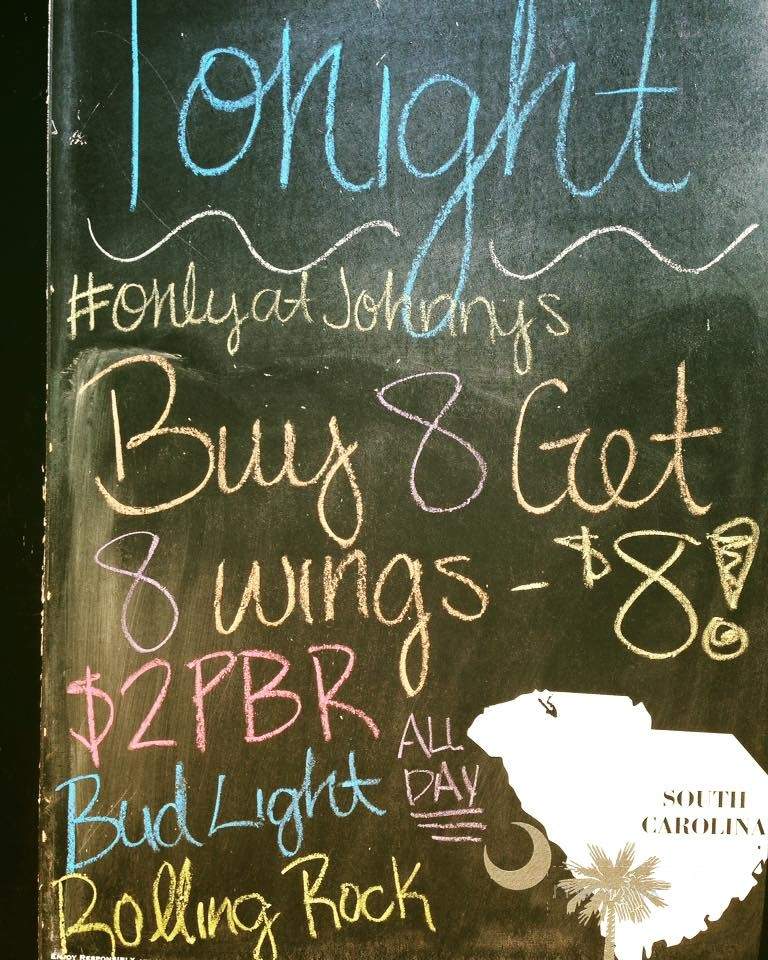 Tonight
#onlyatJohnnys
Buy 8 Get
8 wings - $8!
$2 PBR
ALL
DAY
Bud Light
Rolling Rock
SOUTH
CAROLINA
ENJOY RESPONSIBLY